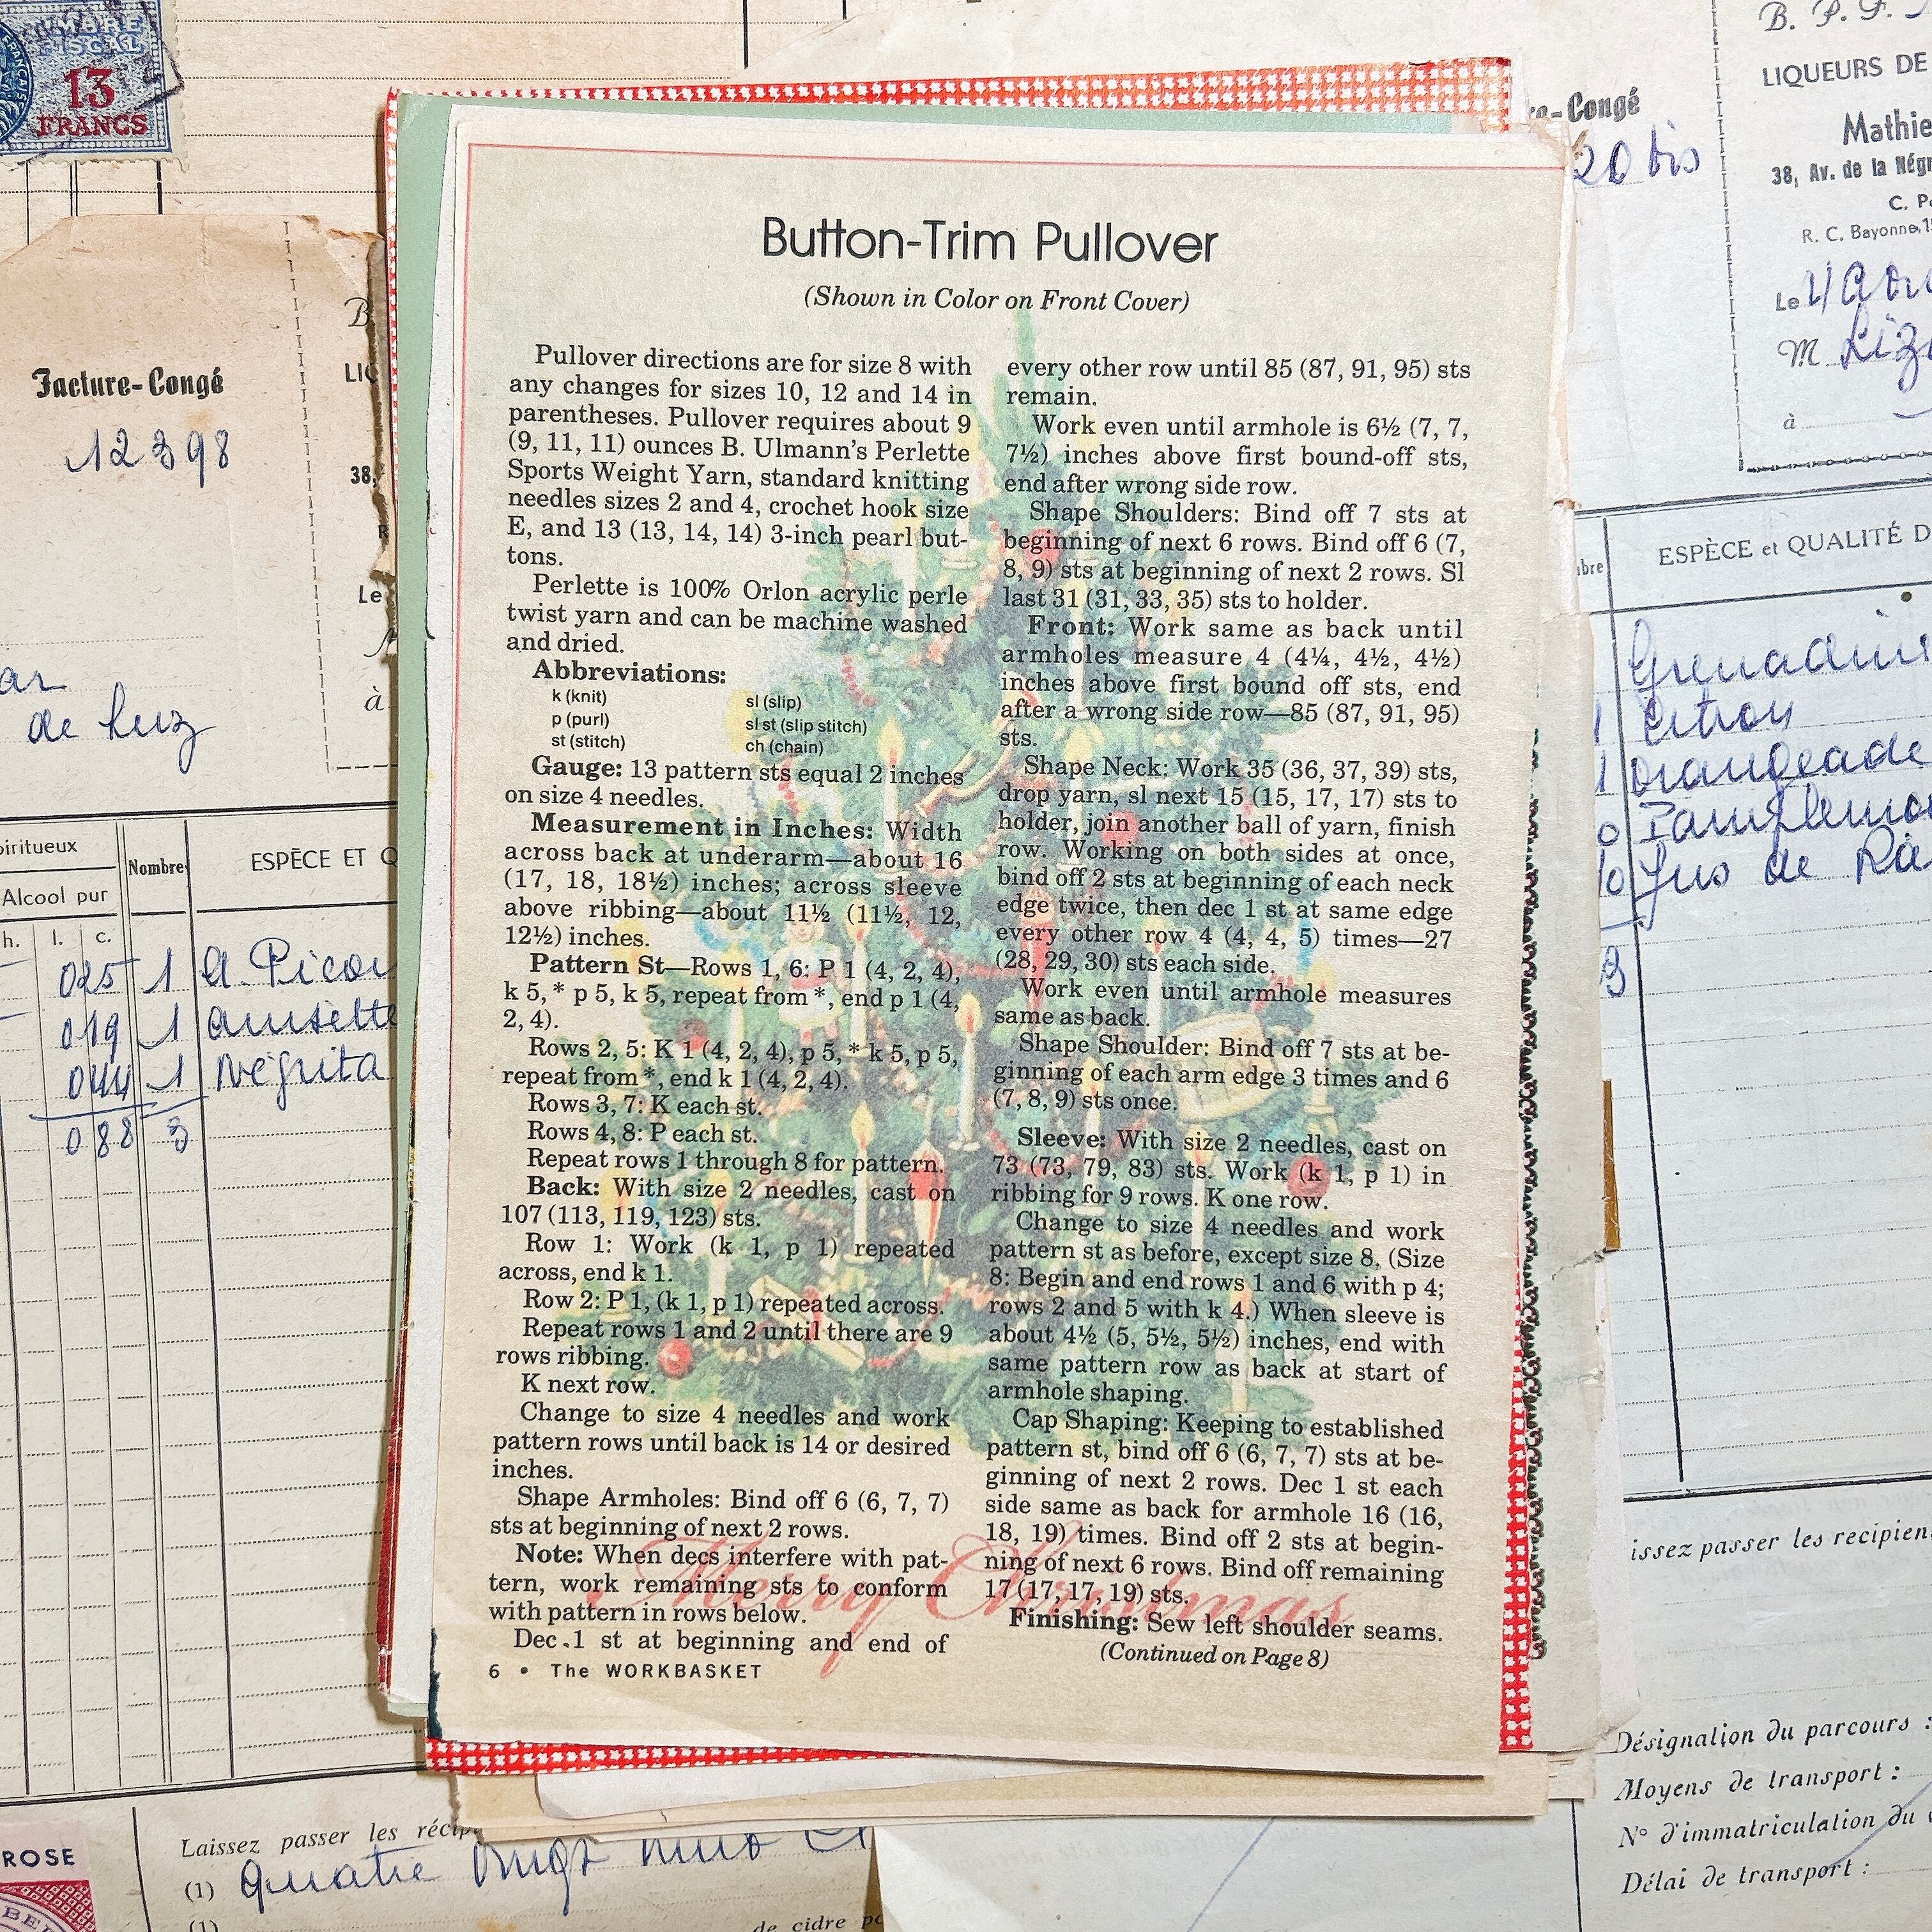 MBRE
FISCAL
13
FRANCS
Facture-Congé
12398
de Luz
Alcool pur
Nombre
ESPÈCE ET Q
h. l. c.
025 1 a. Picon
019 1 anisette
044 1 Négrita
088 3
Laissez passer les
(1) quatre vingt huit
ROSE
de cidre
Button-Trim Pullover
(Shown in Color on Front Cover)
Pullover directions are for size 8 with
any changes for sizes 10, 12 and 14 in
parentheses. Pullover requires about 9
(9, 11, 11) ounces B. Ulmann's Perlette
Sports Weight Yarn, standard knitting
needles sizes 2 and 4, crochet hook size
E, and 13 (13, 14, 14) 3-inch pearl but-
tons.
Perlette is 100% Orlon acrylic perle
twist yarn and can be machine washed
and dried.
Abbreviations:
k (knit)
p (purl)
st (stitch)
sl (slip)
sl st (slip stitch)
ch (chain)
Gauge: 13 pattern sts equal 2 inches
on size 4 needles.
Measurement in Inches: Width
across back at underarm—about 16
(17, 18, 18½) inches; across sleeve
above ribbing—about 11½ (11½, 12,
12½) inches.
Pattern St—Rows 1, 6: P 1 (4, 2, 4),
k 5, * p 5, k 5, repeat from *, end p 1 (4,
2, 4).
Rows 2, 5: K 1 (4, 2, 4), p 5, * k 5, p 5,
repeat from *, end k 1 (4, 2, 4).
Rows 3, 7: K each st.
Rows 4, 8: P each st.
Repeat rows 1 through 8 for pattern.
Back: With size 2 needles, cast on
107 (113, 119, 123) sts.
Row 1: Work (k 1, p 1) repeated
across, end k 1.
Row 2: P 1, (k 1, p 1) repeated across.
Repeat rows 1 and 2 until there are 9
rows ribbing.
K next row.
Change to size 4 needles and work
pattern rows until back is 14 or desired
inches.
Shape Armholes: Bind off 6 (6, 7, 7)
sts at beginning of next 2 rows.
Note: When decs interfere with pat-
tern, work remaining sts to conform
with pattern in rows below.
Dec 1 st at beginning and end of
6 • The WORKBASKET
every other row until 85 (87, 91, 95) sts
remain.
Work even until armhole is 6½ (7, 7,
7½) inches above first bound-off sts,
end after wrong side row.
Shape Shoulders: Bind off 7 sts at
beginning of next 6 rows. Bind off 6 (7,
8, 9) sts at beginning of next 2 rows. Sl
last 31 (31, 33, 35) sts to holder.
Front: Work same as back until
armholes measure 4 (4¼, 4½, 4½)
inches above first bound off sts, end
after a wrong side row—85 (87, 91, 95)
sts.
Shape Neck: Work 35 (36, 37, 39) sts,
drop yarn, sl next 15 (15, 17, 17) sts to
holder, join another ball of yarn, finish
row. Working on both sides at once,
bind off 2 sts at beginning of each neck
edge twice, then dec 1 st at same edge
every other row 4 (4, 4, 5) times—27
(28, 29, 30) sts each side.
Work even until armhole measures
same as back.
Shape Shoulder: Bind off 7 sts at be-
ginning of each arm edge 3 times and 6
(7, 8, 9) sts once.
Sleeve: With size 2 needles, cast on
73 (73, 79, 83) sts. Work (k 1, p 1) in
ribbing for 9 rows. K one row.
Change to size 4 needles and work
pattern st as before, except size 8. (Size
8: Begin and end rows 1 and 6 with p 4;
rows 2 and 5 with k 4.) When sleeve is
about 4½ (5, 5½, 5½) inches, end with
same pattern row as back at start of
armhole shaping.
Cap Shaping: Keeping to established
pattern st, bind off 6 (6, 7, 7) sts at be-
ginning of next 2 rows. Dec 1 st each
side same as back for armhole 16 (16,
18, 19) times. Bind off 2 sts at begin-
ning of next 6 rows. Bind off remaining
17 (17, 17, 19) sts.
Finishing: Sew left shoulder seams.
(Continued on Page 8)
Merry Christmas
B. P. F.
LIQUEURS DE
Mathie
38, Av. de la Négr
R. C. Bayonne
-Congé
20 bis
Le
M
à
ESPÈCE et QUALITÉ D
Grenadine
Citron
Orangeade
Jus de
issez passer les recipien
Désignation du parcours :
Moyens de transport :
N° d'immatriculation du
Délai de transport :